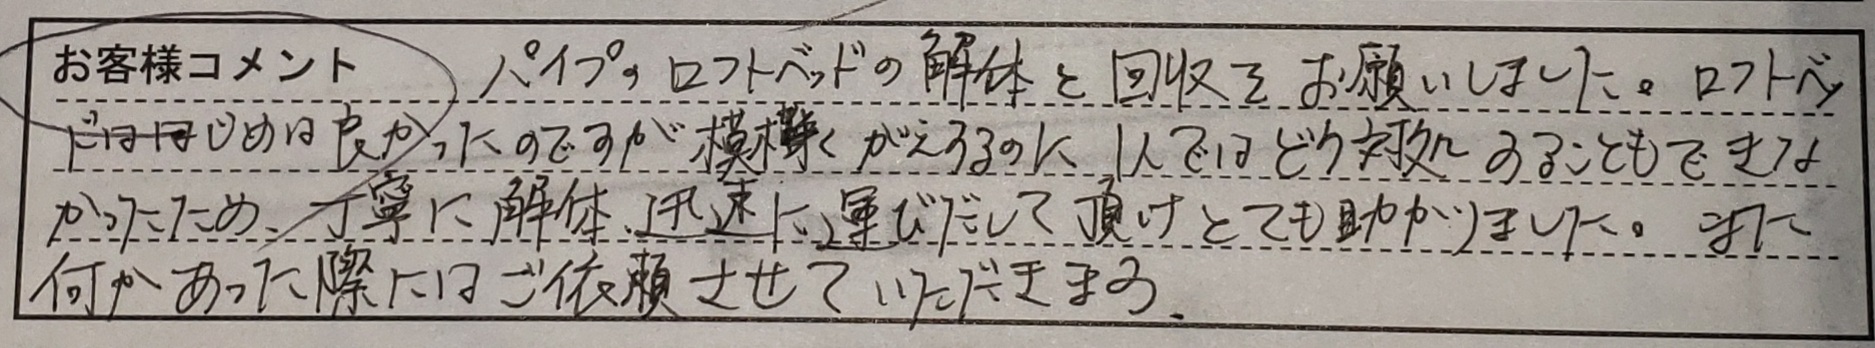 お客様コメント パイプのロフトベッドの解体と回収をお願いしました。ロフトベッ
ドははじめは良かったのですが模様がえするのに1人ではどう対処することもできな
かったため、丁寧に解体、迅速に運びだして頂けとても助かりました。また
何かあった際にはご依頼させていただきます。